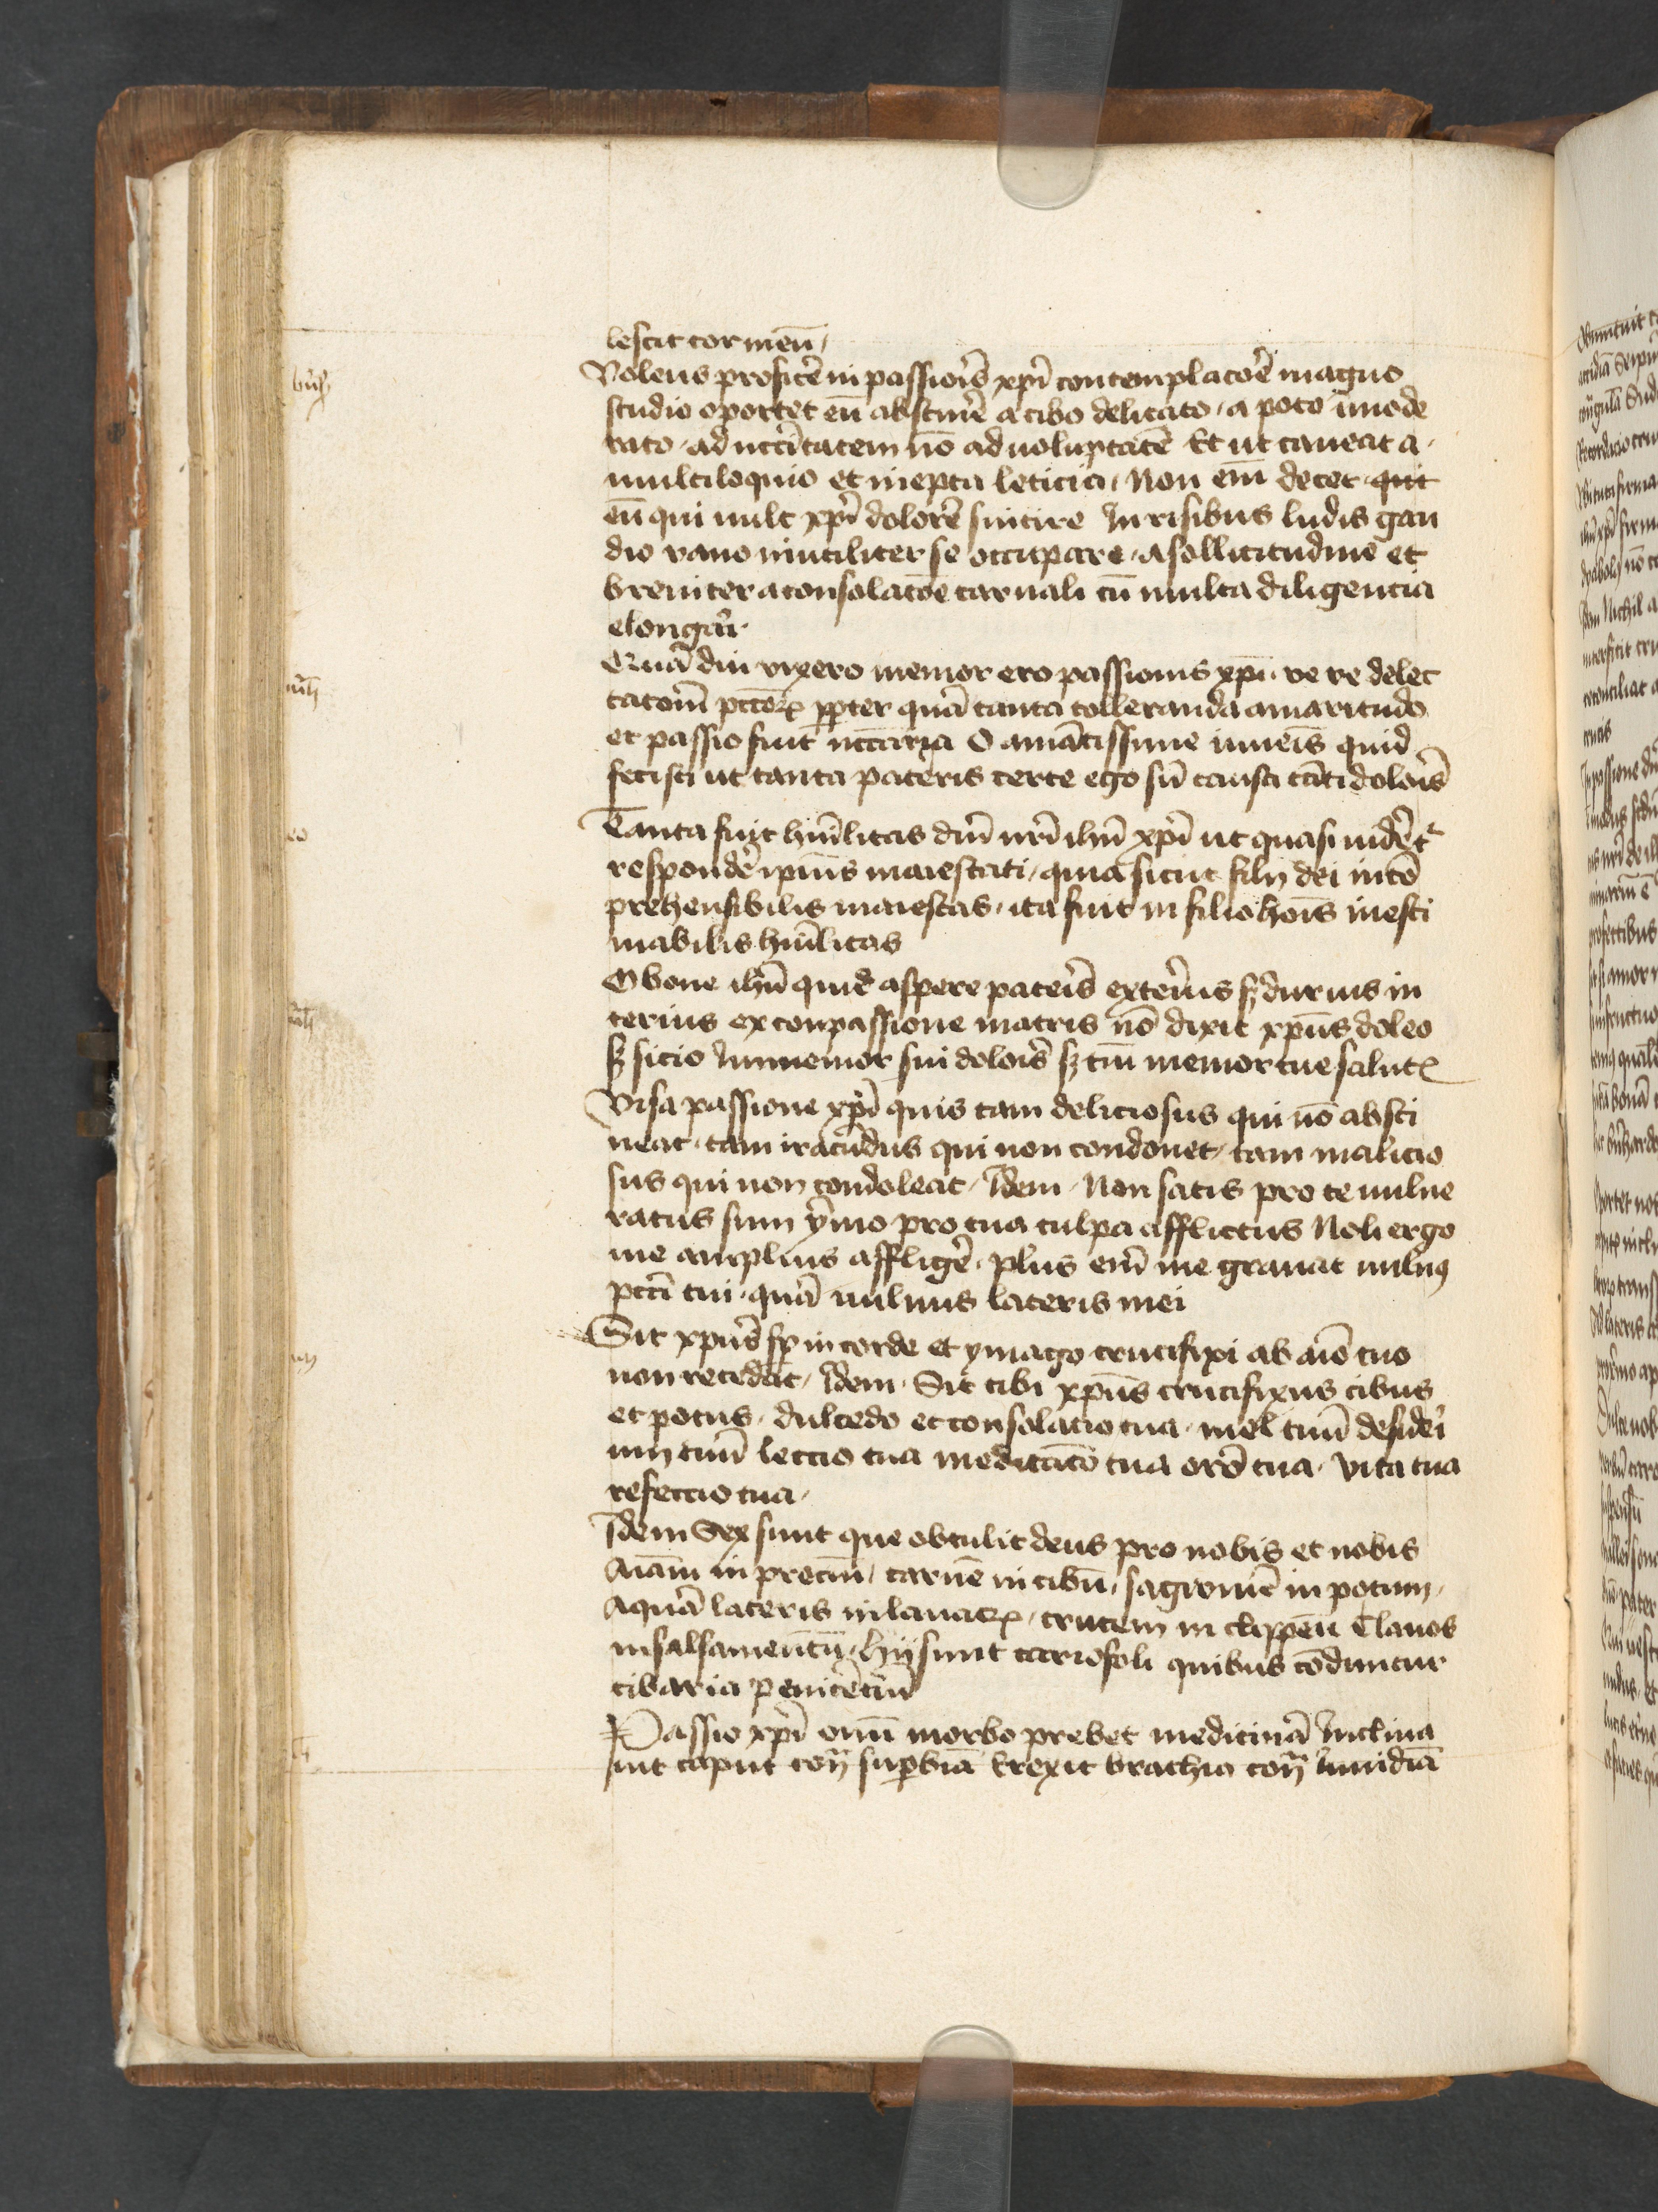 lescit cor meū
Volens proficē in passiōis xp̄i contemplacōē magno
studio oportet eū abstinē a cibo delicato, a poto īmode
rato, ad nccītatem nō ad uoluptatē Et ut caueat a
multiloquio et inepta leticia, Non em̄ decet qui
eū qui uult xp̄i dolorē sentire In risibus ludis gau
dio vano inutiliter se occupare, a sollicitudine et
breuiter a consolacōe carnali cū multa diligencia
elongari
Quā diu vixero memor ero passionis xp̄i ve ve delec
tacōni pctōrꝝ ꝓpter quā tanta tolleranda amaritudo
et passio fuit nccāria O amātissime iuueīs quid
fecisti ut tanta pateris certe ego sū causa tāti dolōis
Tanta fuit hūilitas dn̄i nr̄i ihū xp̄i ut quasi uidēt᷑
respondē ipīus maiestati, quia sicut filij dei incō
prehensibilis maiestas, ita fuit in filio hōis inesti
mabilis hūilitas
O bone ihū quid aspere pateīs exterīus sꝫ durius in
terius ex conpassione matris nō dixit xp̄us doleo
sꝫ sicio Immemor sui dolōis sꝫ tm̄ memor tue salutꝭ
Visa passione xp̄i quis tam deliciosus qui nō absti
neat, tam iracūdus qui non condonet, tam malicio
sus qui non condoleat, Idem, Non satis pro te uulne
ratus sum ymo pro tua culpa afflictus Noli ergo
me amplius affligē, plus em̄ me grauat uulnꝰ
pctī tui, quā uulnus lateris mei
Sit xp̄us sp̄ in corde et ymago crucifixi ab aīo tuo
non recedat, Idem, Sit tibi xp̄us crucifixus cibus
et potus, dulcedo et consolacio tua, mel tuū desideri
um tuū leccio tua meditacō tua orō tua, vita tua
refeccio tua,
Idem Sex sunt que obtulit deus pro nobis et nobis
Aīam in preciū, carnē in cibū, sagwinē in potum,
Aquā lateris in lauacrꝭ, crucem in clippeū Clauos
in salsamentū, hij sunt cariofoli quibus cōduntur
cibaria penitēciū
Passio xp̄i omī morbo prebet medicinā Inclina
uit caput cont̄ suꝑbiā Erexit brachia cont̄ Inuidiā